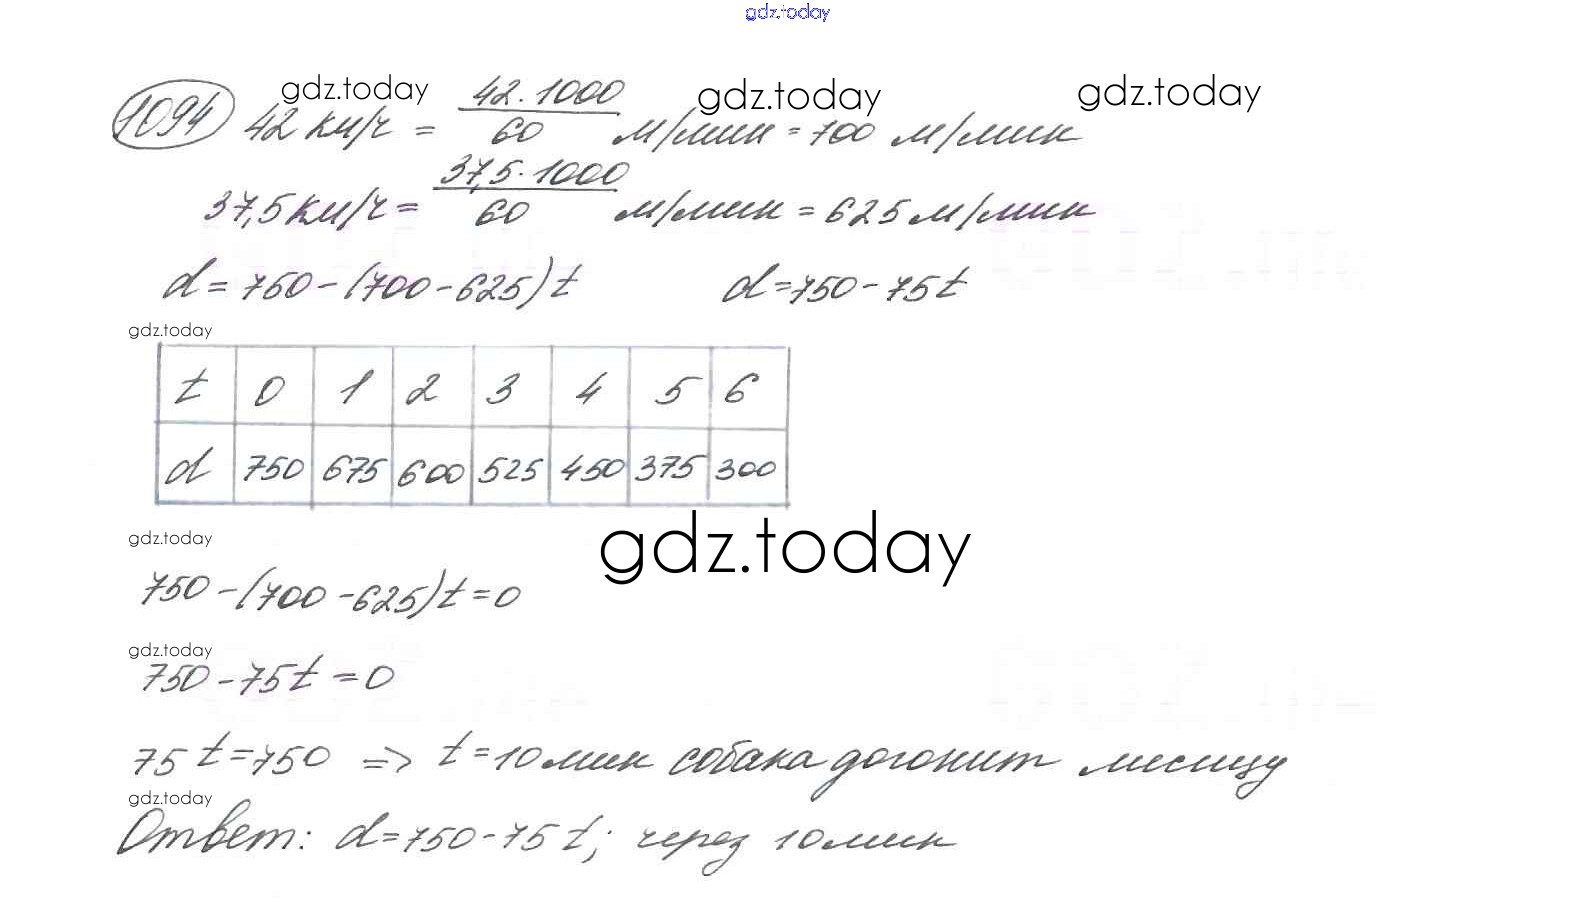 gdz.today
1094 42 км/ч = 42·1000/60 м/мин = 700 м/мин
gdz.today gdz.today gdz.today
37,5 км/ч = 37,5·1000/60 м/мин = 625 м/мин
d = 750 - (700 - 625)t d = 750 - 75t
gdz.today
t 0 1 2 3 4 5 6
d 750 675 600 525 450 375 300
gdz.today
gdz.today
750 - (700 - 625)t = 0
gdz.today
750 - 75t = 0
75t = 750 => t = 10 мин собака догонит лисицу
gdz.today
Ответ: d = 750 - 75t; через 10 мин